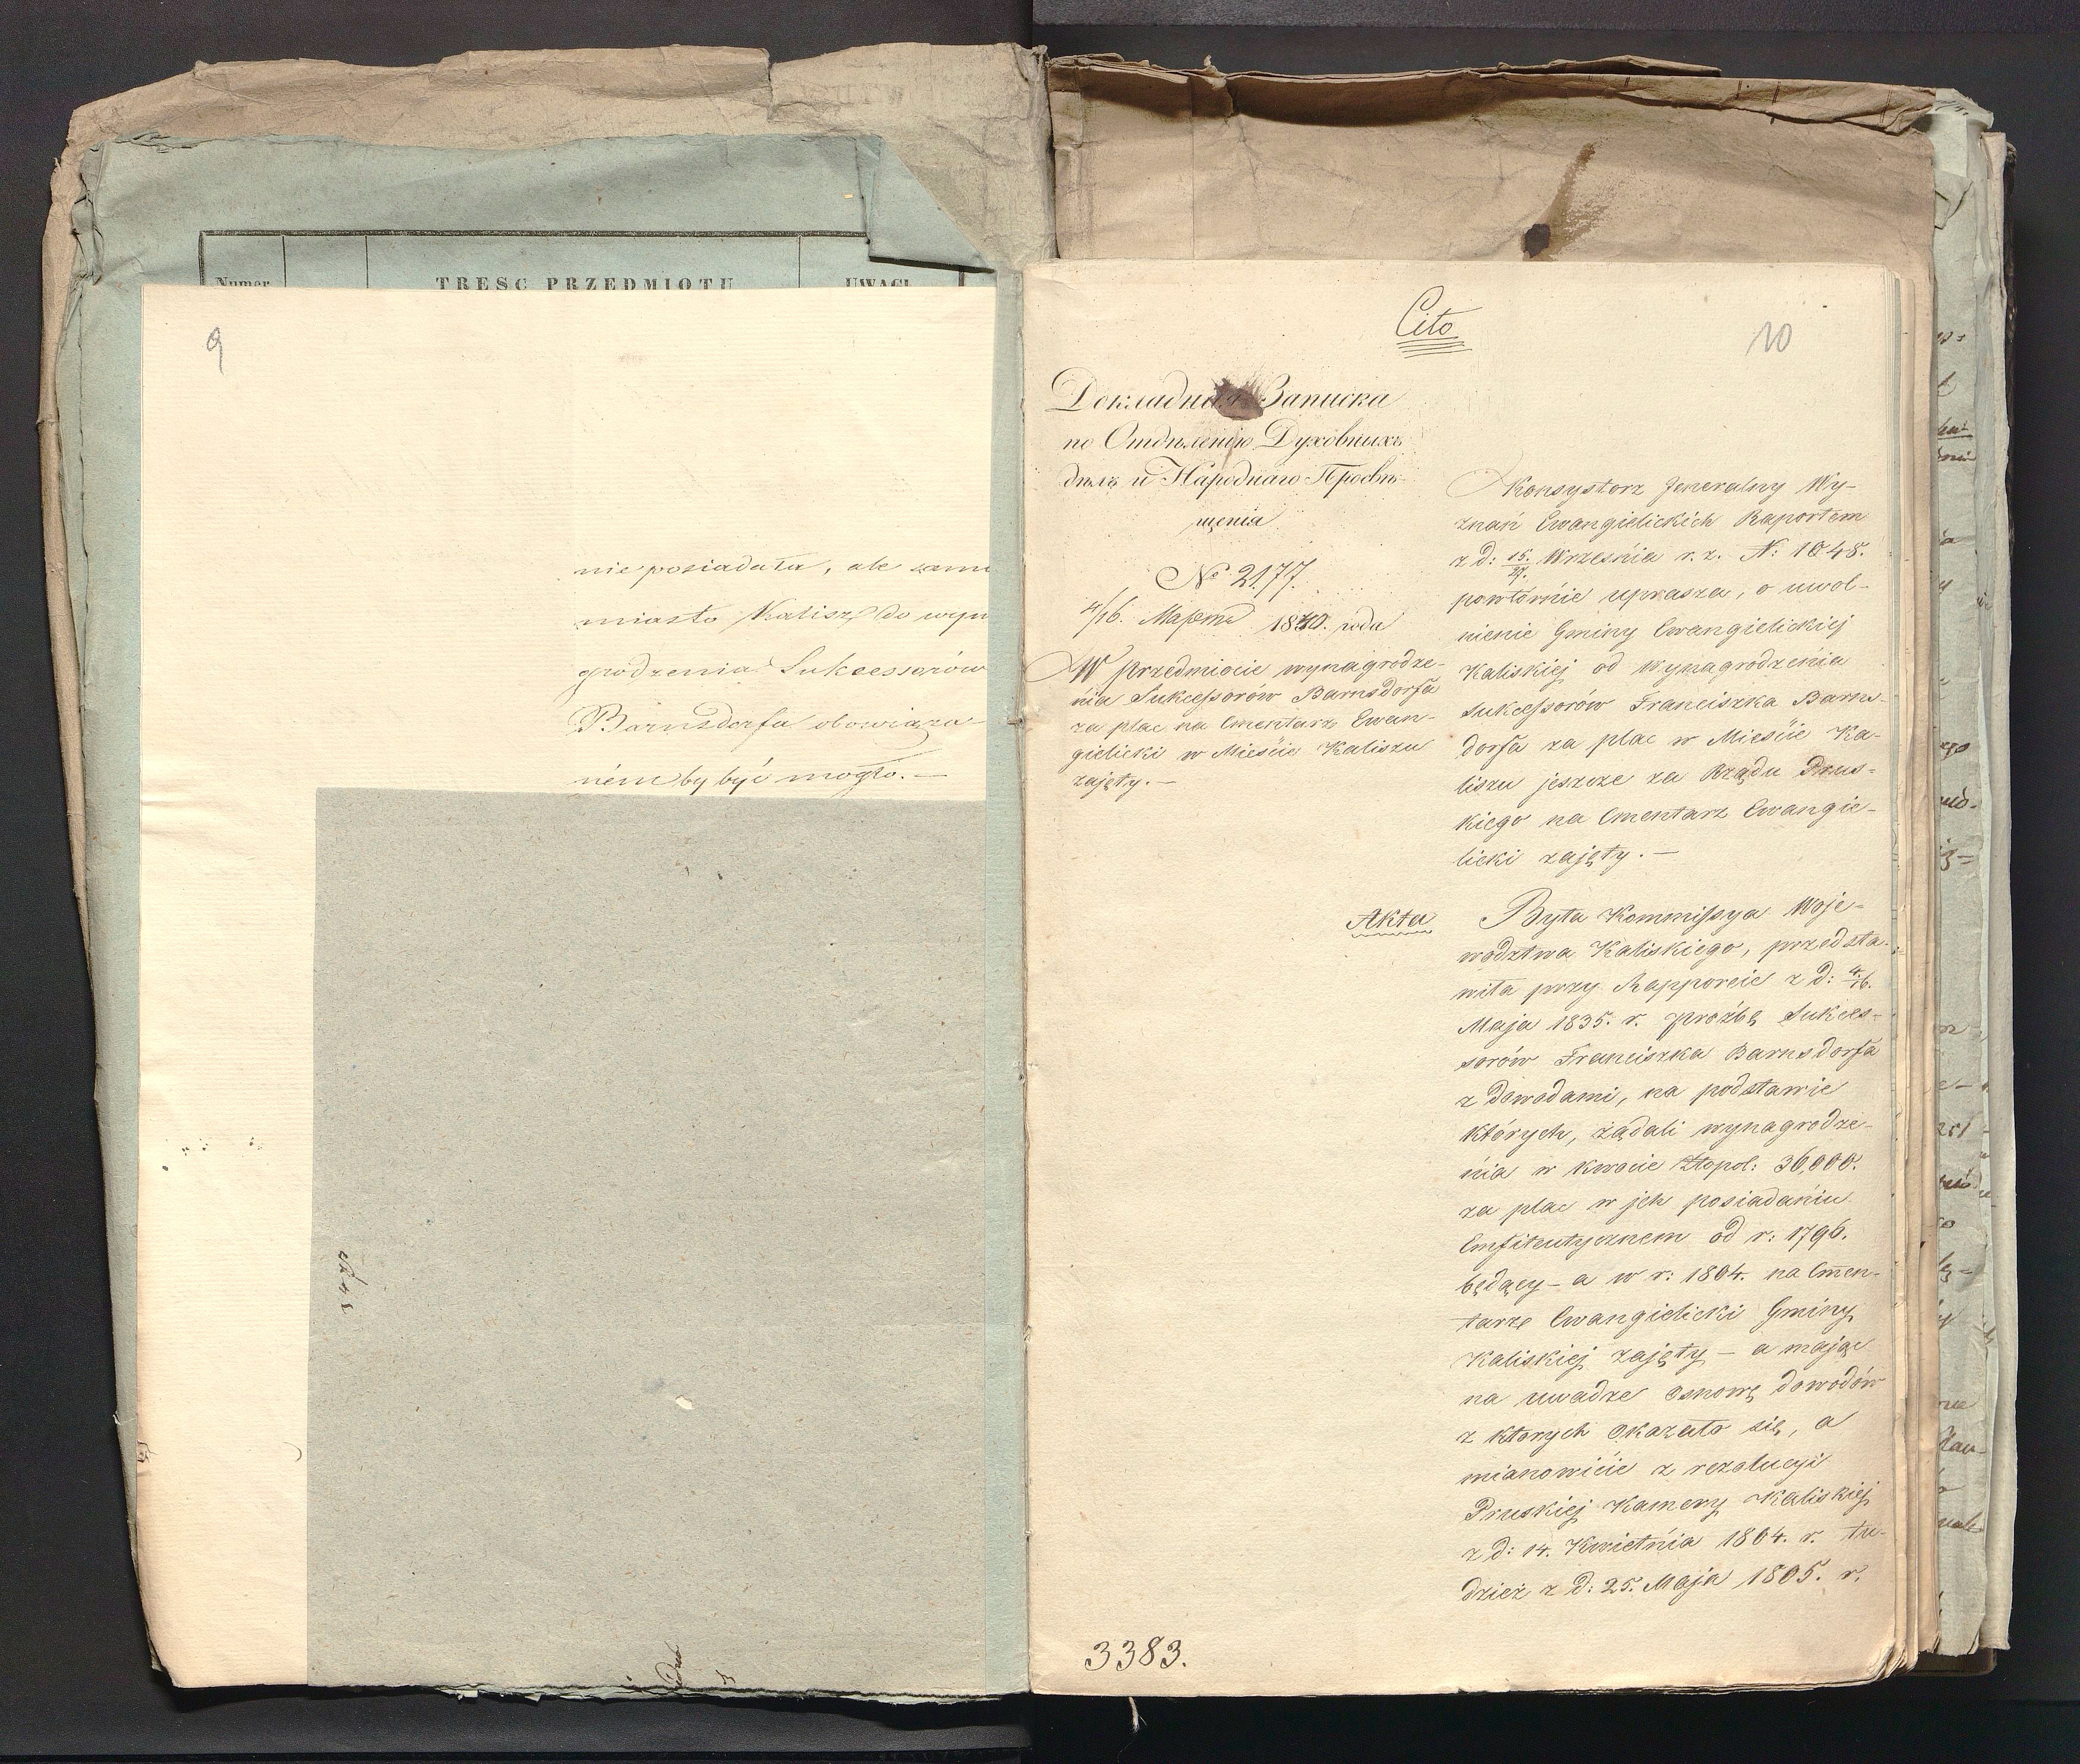 Numer
TRESC PRZEDMIOTU
UWAGI
9
nie posiadała, ale samo
miasto Kalisz do wyn
grodzenia Sukcessorów
Barnsdorfa obowiąza-
ném by być mogło. —
Cito
10
Докладная Записка
по Отдѣленію Духовныхъ
дѣлъ и Народнаго Просвѣ-
щенія
№ 2177.
4/16. Марта 1840. года
W przedmiocie wynagrodze-
nia Sukcessorów Barnsdorfa
za plac na Cmentarz Ewan-
gielicki w Mieście Kaliszu
zajęty. —
Konsystorz Jeneralny Wy-
znań Ewangielickich Raportem
z d: 15/27. Września r. z. N: 1048.
powtórnie uprasza, o uwol-
nienie Gminy Ewangielickiej
Kaliskiej od wynagrodzenia
Sukcessorów Franciszka Barns-
dorfa za plac w Mieście Ka-
liszu jeszcze za Rządu Prus-
kiego na Cmentarz Ewangie-
licki zajęty. —
Akta
Była Kommissya Woje-
wództwa Kaliskiego, przedsta-
wiła przy Rapporcie z d: 4/16.
Maja 1835. r. proźbę Sukces-
sorów Franciszka Barnsdorfa
z dowodami, na podstawie
których, żądali wynagrodze-
nia w kwocie Złopol: 36,000.
za plac w jch posiadaniu
Emfiteutycznem od r: 1796.
będący — a w r: 1804. na Cmen-
tarz Ewangielicki Gminy
Kaliskiej zajęty — a mając
na uwadze osnowę dowodów
z ktorych okazało się, a
mianowicie z rezolucyi
Pruskiej Kamery Kaliskiej
z d: 14. Kwietnia 1804. r. tu-
dzież z d: 25. Maja 1805. r.
3383.